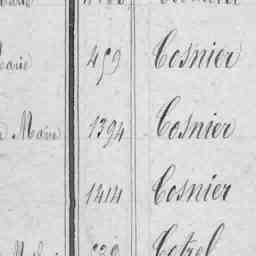 459 Cosnier
Marie 1394 Cosnier
1414 Cosnier
Cotrel